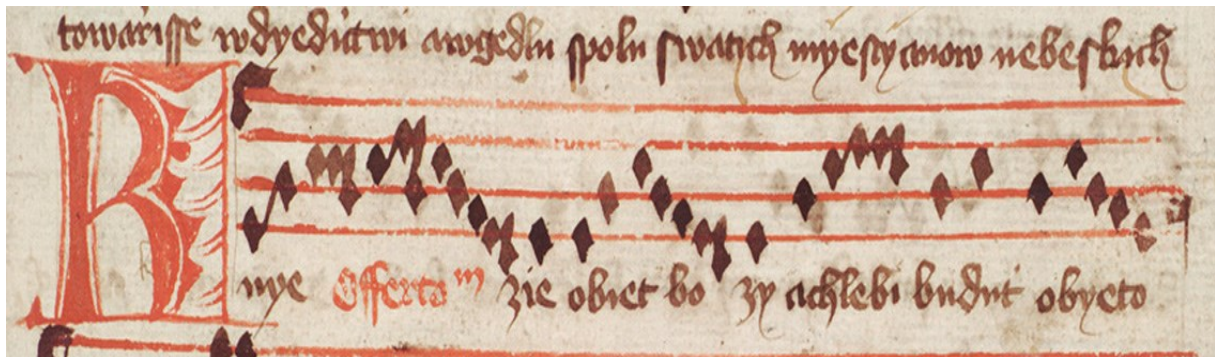 towarisse wdyedictwi awgedlu spolu swatych myesstyanow nebeskych
Knye Offerto m zie obiet bo zy achlebi budut obyeto